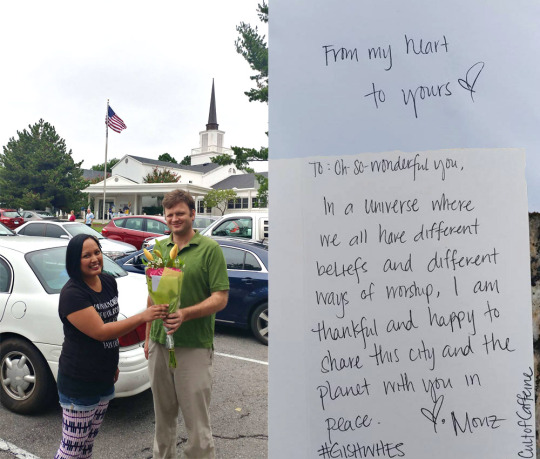 From my heart
to yours
To: Oh-so-wonderful you,
In a universe where
we all have different
beliefs and different
ways of worship, I am
thankful and happy to
share this city and the
planet with you in
peace.
Monz
#GISHWHES
CultofCaffeine